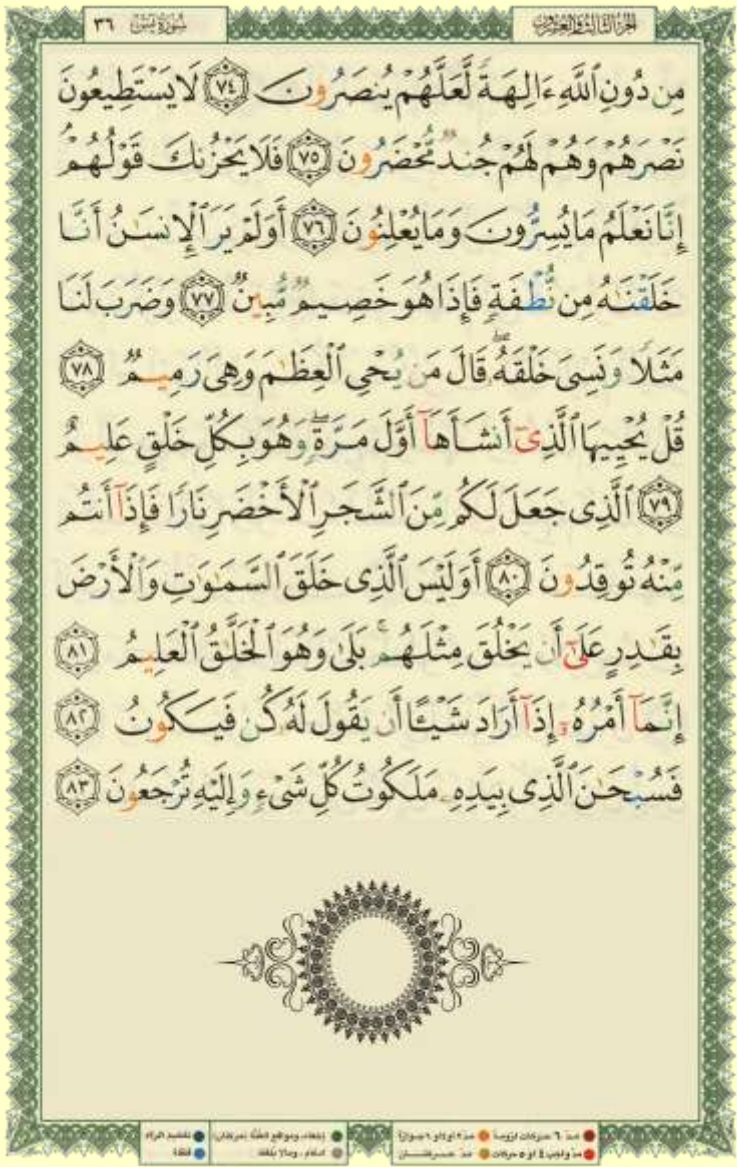 الجزء الثالث والعشرون
سورة يس ٣٦
مِن دُونِ ٱللَّهِ ءَالِهَةً لَّعَلَّهُمْ يُنصَرُونَ ٧٤ لَا يَسْتَطِيعُونَ
نَصْرَهُمْ وَهُمْ لَهُمْ جُندٌ مُّحْضَرُونَ ٧٥ فَلَا يَحْزُنكَ قَوْلُهُمْ
إِنَّا نَعْلَمُ مَا يُسِرُّونَ وَمَا يُعْلِنُونَ ٧٦ أَوَلَمْ يَرَ ٱلْإِنسَـٰنُ أَنَّا
خَلَقْنَـٰهُ مِن نُّطْفَةٍ فَإِذَا هُوَ خَصِيمٌ مُّبِينٌ ٧٧ وَضَرَبَ لَنَا
مَثَلًا وَنَسِىَ خَلْقَهُۥ ۖ قَالَ مَن يُحْىِ ٱلْعِظَـٰمَ وَهِىَ رَمِيمٌ ٧٨
قُلْ يُحْيِيهَا ٱلَّذِىٓ أَنشَأَهَآ أَوَّلَ مَرَّةٍ ۖ وَهُوَ بِكُلِّ خَلْقٍ عَلِيمٌ
٧٩ ٱلَّذِى جَعَلَ لَكُم مِّنَ ٱلشَّجَرِ ٱلْأَخْضَرِ نَارًا فَإِذَآ أَنتُم
مِّنْهُ تُوقِدُونَ ٨٠ أَوَلَيْسَ ٱلَّذِى خَلَقَ ٱلسَّمَـٰوَٰتِ وَٱلْأَرْضَ
بِقَـٰدِرٍ عَلَىٰٓ أَن يَخْلُقَ مِثْلَهُم ۚ بَلَىٰ وَهُوَ ٱلْخَلَّـٰقُ ٱلْعَلِيمُ ٨١
إِنَّمَآ أَمْرُهُۥٓ إِذَآ أَرَادَ شَيْـًٔا أَن يَقُولَ لَهُۥ كُن فَيَكُونُ ٨٢
فَسُبْحَـٰنَ ٱلَّذِى بِيَدِهِۦ مَلَكُوتُ كُلِّ شَىْءٍ وَإِلَيْهِ تُرْجَعُونَ ٨٣
مدّ ٦ حركات لزوماً مدّ ٢ أو ٤ أو ٦ جوازاً إخفاء، ومواقع الغنّة (حركتان) تفخيم الراء
مدّ واجب ٤ أو ٥ حركات مدّ حركتان ادغام، وما لا يلفظ قلقلة